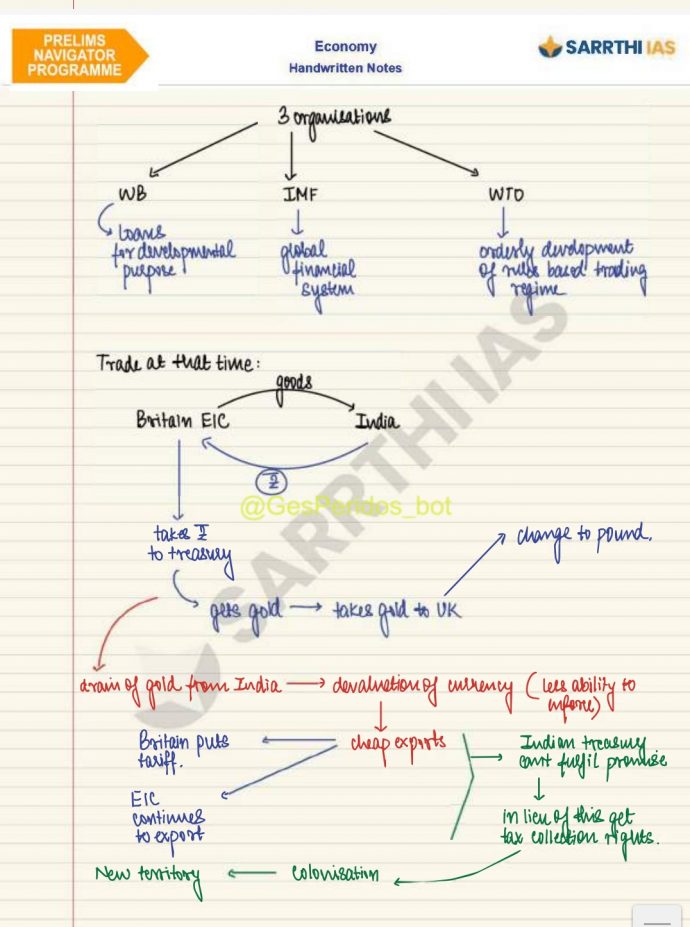 PRELIMS
NAVIGATOR
PROGRAMME
Economy
Handwritten Notes
SARRTHI IAS
3 organisations
WB IMF WTO
Loans
for developmental
purpose
global
financial
system
orderly development
of rules based trading
regime
Trade at that time:
goods
Britain EIC India
₹
@GesPendos_bot
SARRTHI IAS
takes ₹
to treasury
change to pound.
gets gold → takes gold to UK
drain of gold from India → devaluation of currency (less ability to
cheap exports
Britain puts
tariff.
EIC
continues
to export
Indian treasury
can't fulfil promise
in lieu of this get
tax collection rights.
New territory ← colonisation